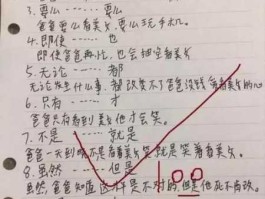 3.要么……要么
爸爸要么看美女,要么玩手机。
4.即使……也
即使爸爸再忙,也会抽空看美女
5.无论……都
无论发生什么事,都改变不了爸爸没钱 看美女的心
6.只有……才
爸爸只有看到美女他才会笑。
7.不是……就是
爸爸一天到晚不是看着美女笑就是笑着看美女
8.虽然……但是
虽然,爸爸知道这样是不对的,但是他死不悔改。
100